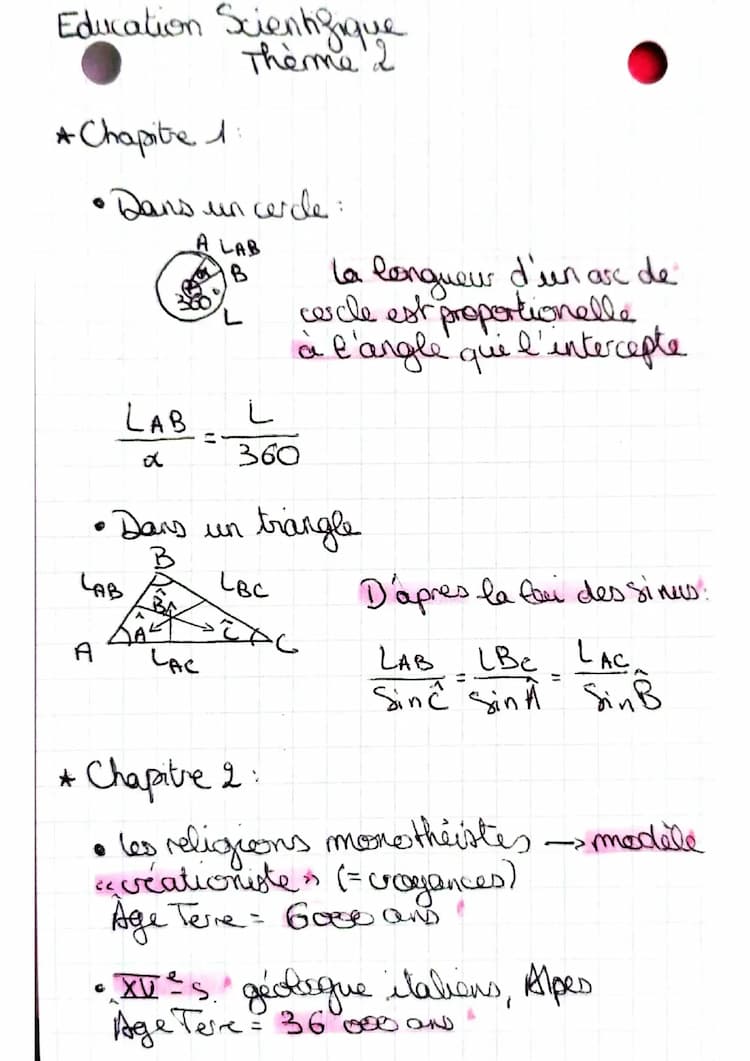 Education Scientifique
Thème 2
★ Chapitre 1:
• Dans un cercle:
A LAB
α B
360°
L
La longueur d'un arc de
cercle est proportionelle
à l'angle qui l'intercepte
LAB/α = L/360
• Dans un triangle
B
LAB LBC
B̂
Â Ĉ
A C
LAC
D'apres la loi des sinus:
LAB/Sin Ĉ = LBC/Sin Â = LAC/Sin B̂
★ Chapitre 2:
• les religions monothéistes → modèle
«créationiste» (= croyances)
Âge Terre = 6000 ans
• XVe s. géologue italiens, Alpes
Age Terre = 36 000 ans